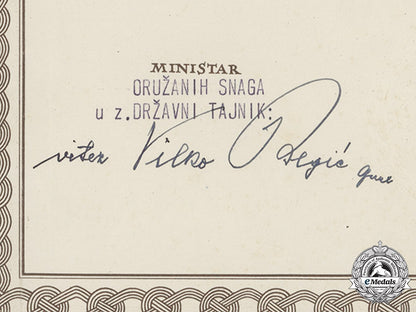 MINISTAR
ORUŽANIH SNAGA
u z. DRŽAVNI TAJNIK:
vitez Vilko Begić
eMedals